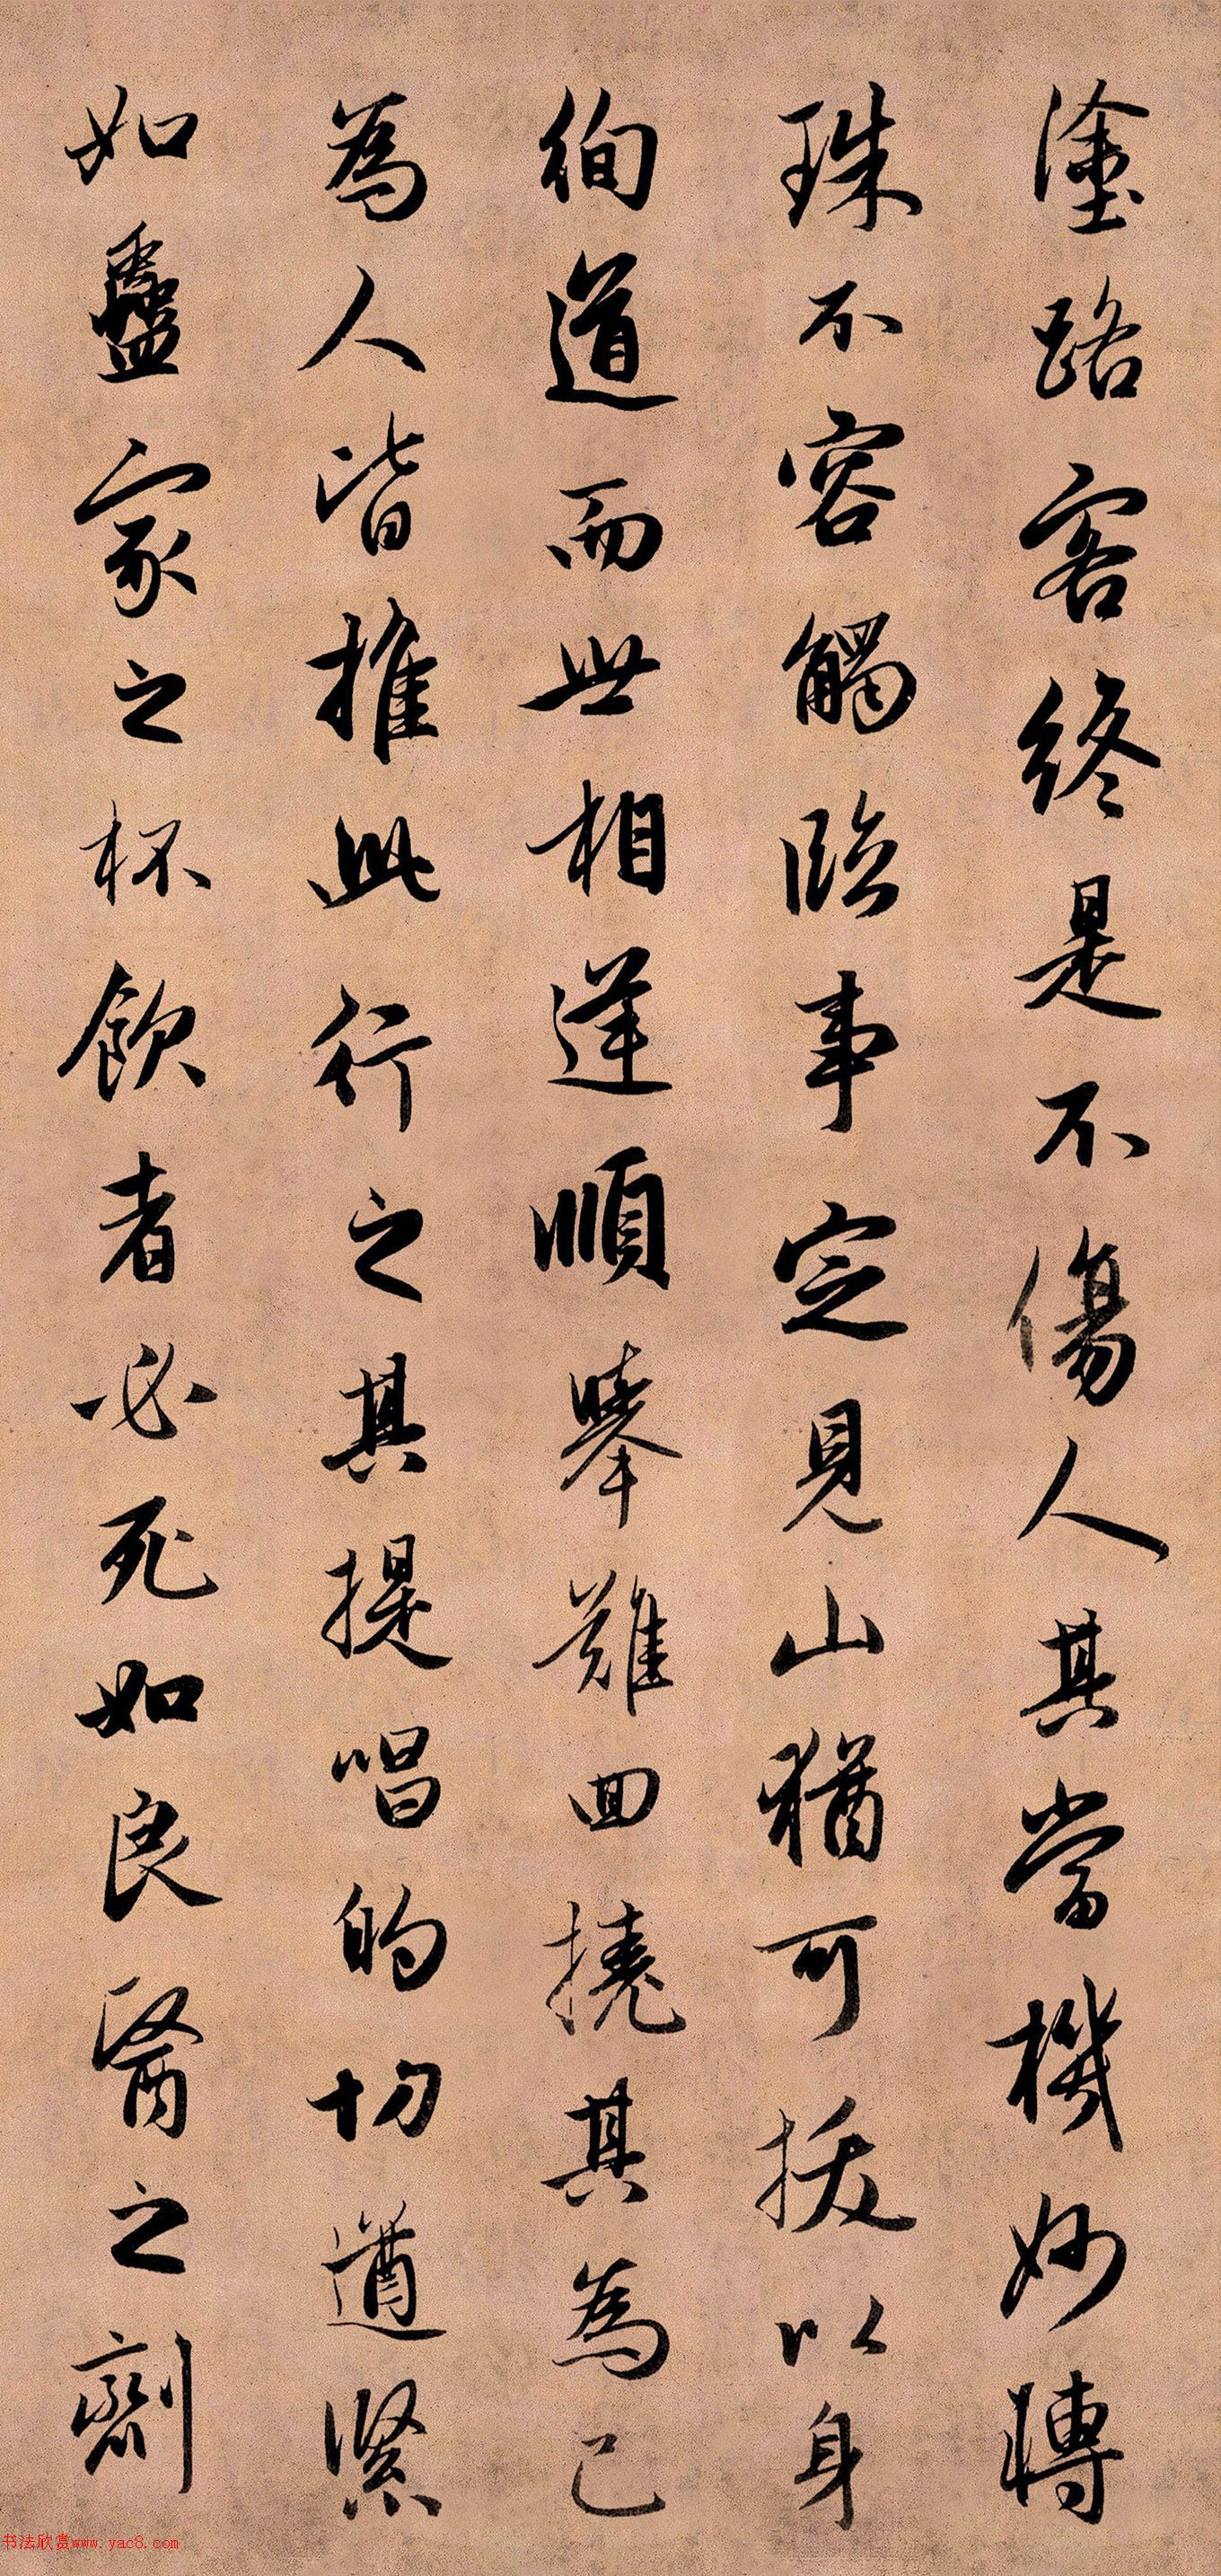 塗路客終是不傷人其當機妙轉
珠不容觸臨事定見山猶可拔以身
徇道而與世相逢順舉難回撓其為己
為人皆推此行之其提唱的切遒緊
如蠱家之杯飲者必死如良醫之劑
书法欣赏www.yac8.com